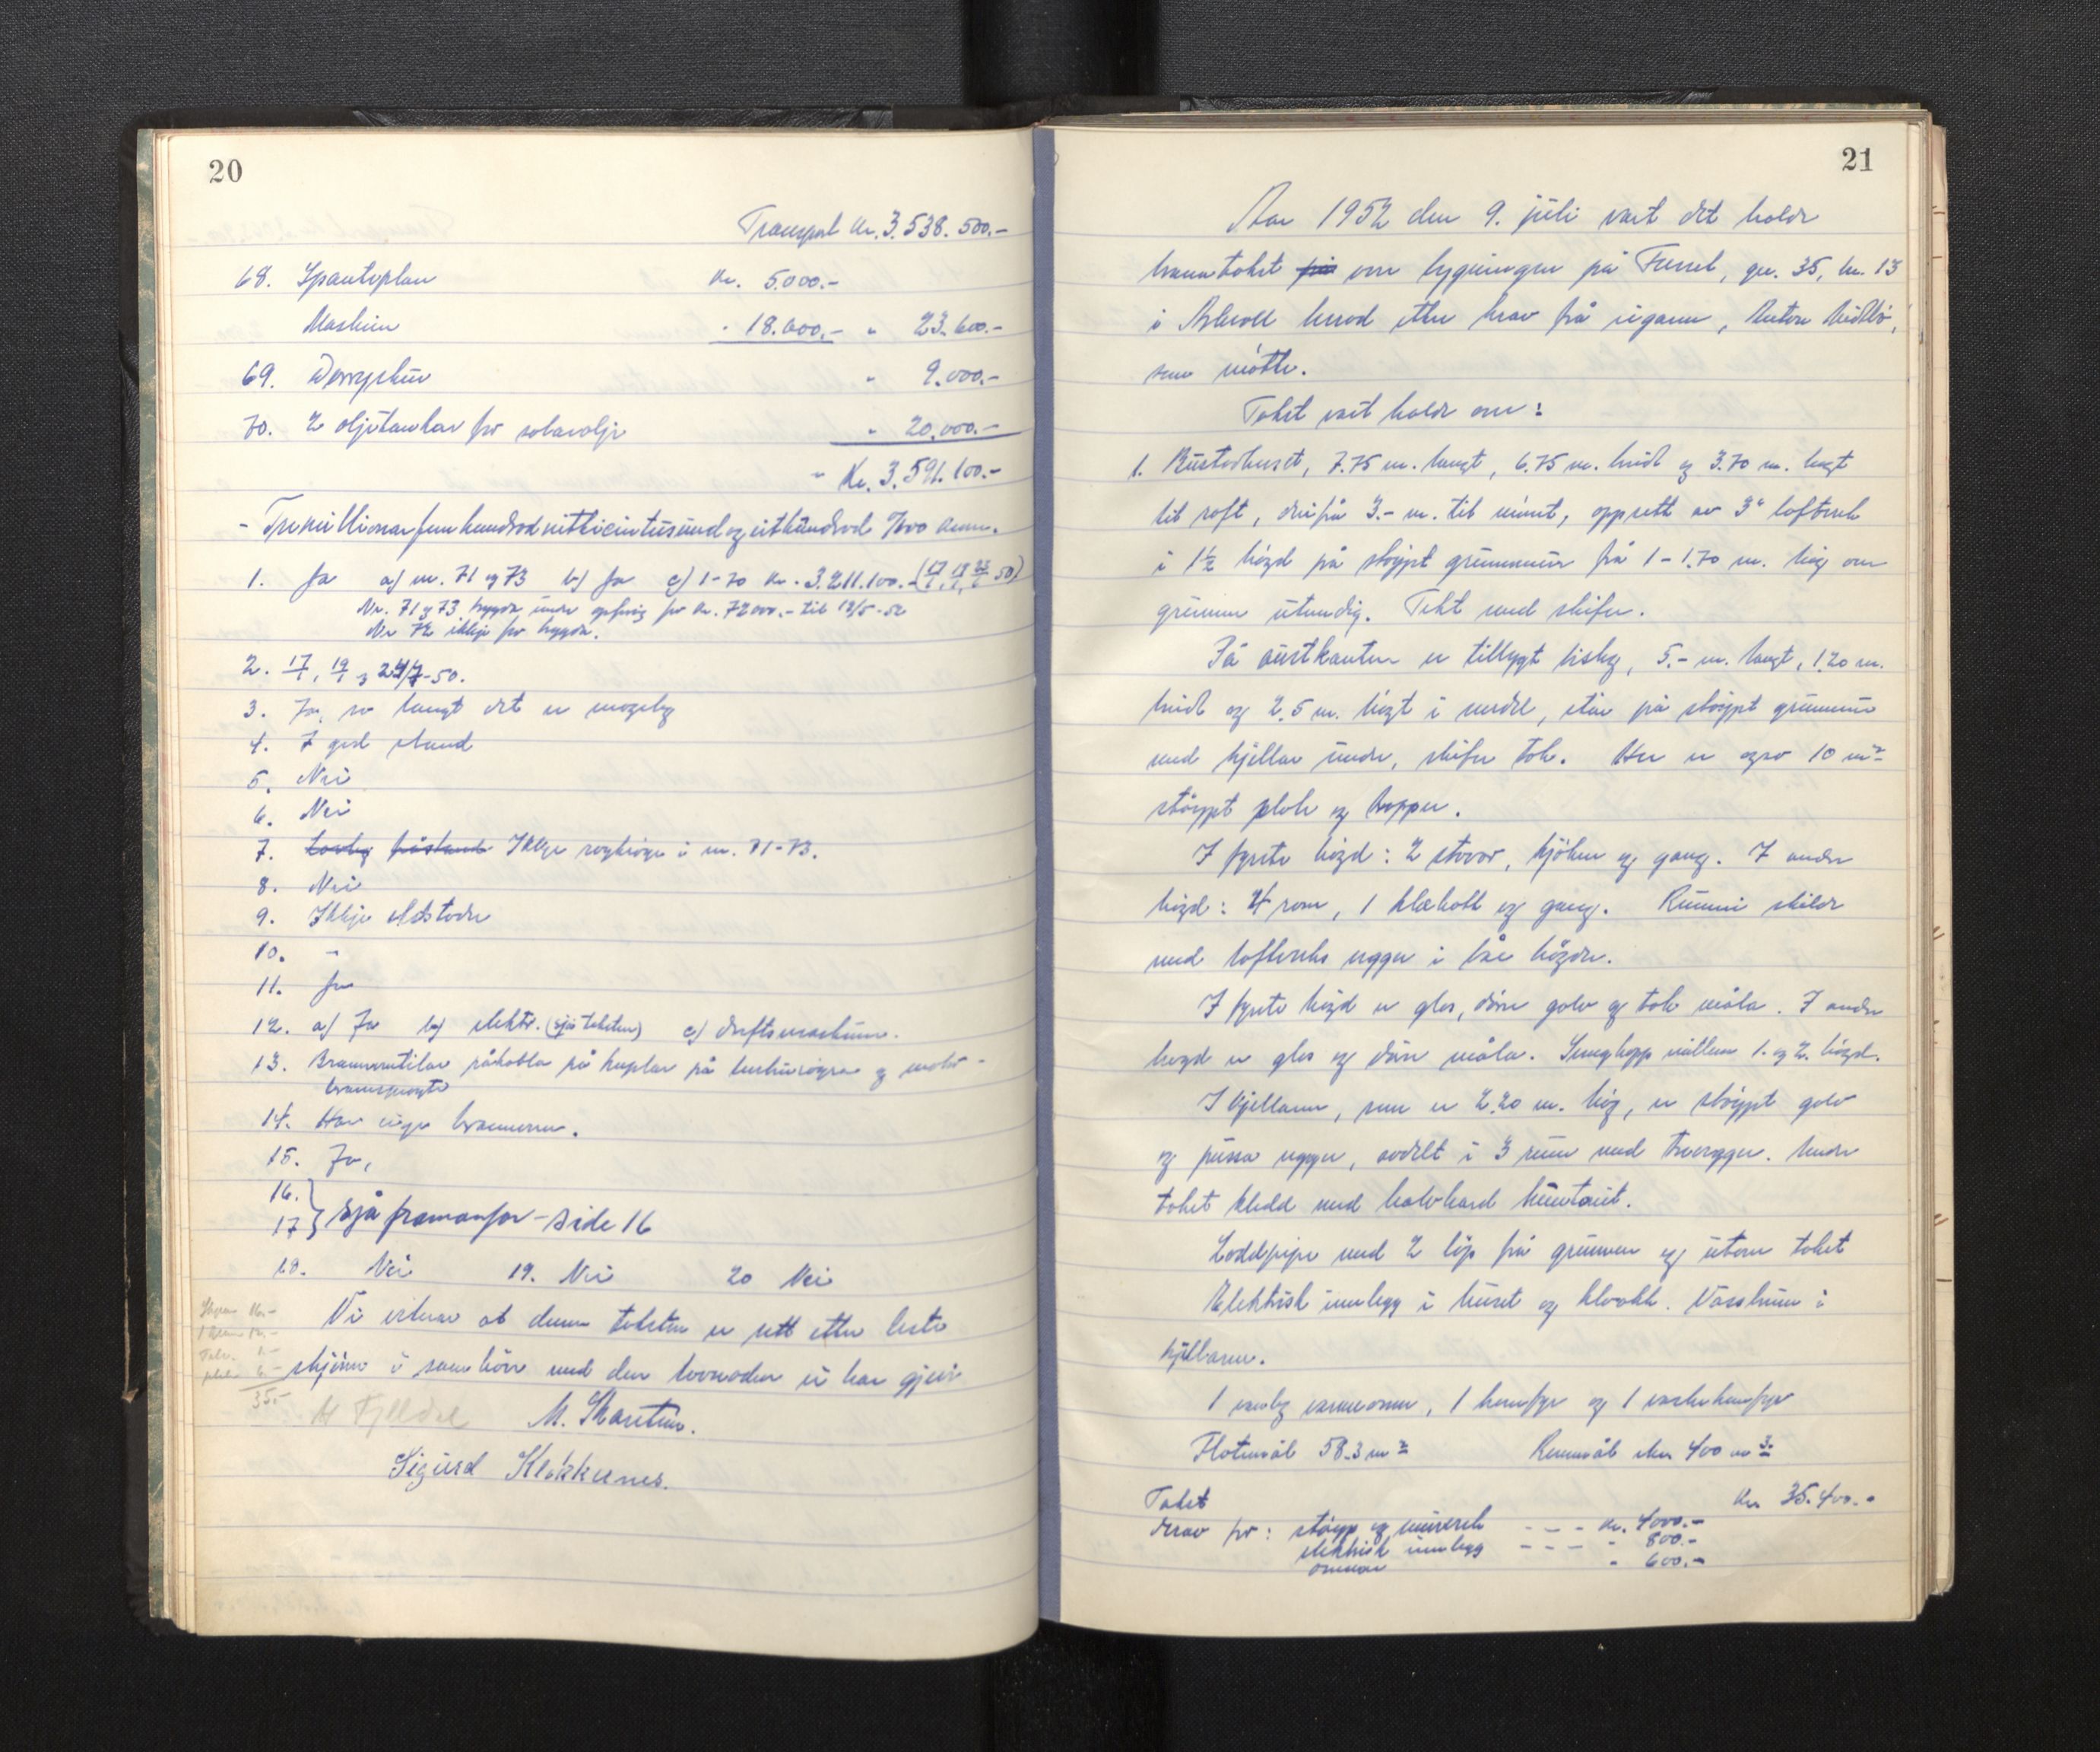 20
Transport kr. 3.538.500.-
68. Spantoplan kr. 5.000.-
Maskin " 18.600.- " 23.600.-
69. " 9.000.-
70. 2 oljetankar for solarolje " 20.000.-
" Kr. 3.591.100.-
- Tre millionar fem hundrad nittiein tusund og eit hundrad 7/00 kron.
1. Ja a) nr. 71 og 73 b) Ja c) 1-70 kr. 3.211.100.-
Nr. 71 og 73 bygde under oppføring for kr. 72000.- til 12/5-52
Nr 72 ikkje før bygde.
2. 17/7, 19/7 og 24/7-50.
3. Ja, so langt det er mogeleg
4. I god stand
5. Nei
6. Nei
7. Ikkje i nr. 71-73.
8. Nei
9. Ikkje eldstader
10. "
11. Ja
12. a) Ja b) elektr. (sjå taksten) c) driftsmaskiner.
13. Brannventilar påkobla på
14. Har
15. Ja,
16.
17 } Sjå framanfor - side 16
18. Nei 19. Nei 20 Nei
Vi vitnar at denne taksten er sett etter beste
skjønn i samhøve med den lovnaden vi har gjeve
35.-
H Fjelldal M. Skarstein.
Sigurd Klokkernes.
21
Aar 1952 den 9. juli vart det halde
branntakst på over bygningen på gr. 35, br. 13
i herad etter krav frå eigaren, Anton
som møtte.
Takst vart halde over:
1. Bustadhuset, 7.75 m. langt, 6.75 m. breidt og 3.70 m. høgt
til raft, derifrå 3.- m. til mønet, oppsett av 3" lofteverk
i 1½ høgd på støypt grunnmur frå 1 - 1.70 m. høg over
grunnen utvendig. Tekt med skifer.
På austkanten er tilbygt bislag, 5.- m. langt, 1.20 m.
breidt og 2.5 m. høgt i medel, står på støypt grunnmur
med kjellar under, skifer tak. Her er ogso 10 m²
støypt plate og trapper.
I fyrste høgd: 2 stover, kjøken og gang. I andre
høgd: 4 rom, 1 klekott og gang. Rummi skilde
med lofteverks vegger i båe høgder.
I fyrste høgd er glas, dører golv og tak måla. I andre
høgd er glas og dører måla. millom 1. og 2. høgd.
I kjellaren, som er 2.20 m. høg, er støypt golv
og pussa vegger, avdelt i 3 rum med trevegger. Under
taket kledd med halvhard huntonit.
Loddpipe med 2 løp frå grunnen og utom taket
Elektrisk innlegg i huset og kloakk. Vasskum i
kjellaren.
1 vanleg varmeomn, 1 komfyr og 1 vaskekomfyr
Flatemål 58.3 m² Rummål ca. 400 m³
Takst kr. 35.400.-
derav for: støyp og murverk - - - kr. 4000.-
elektrisk innlegg - - - " 800.-
omnar " 600.-